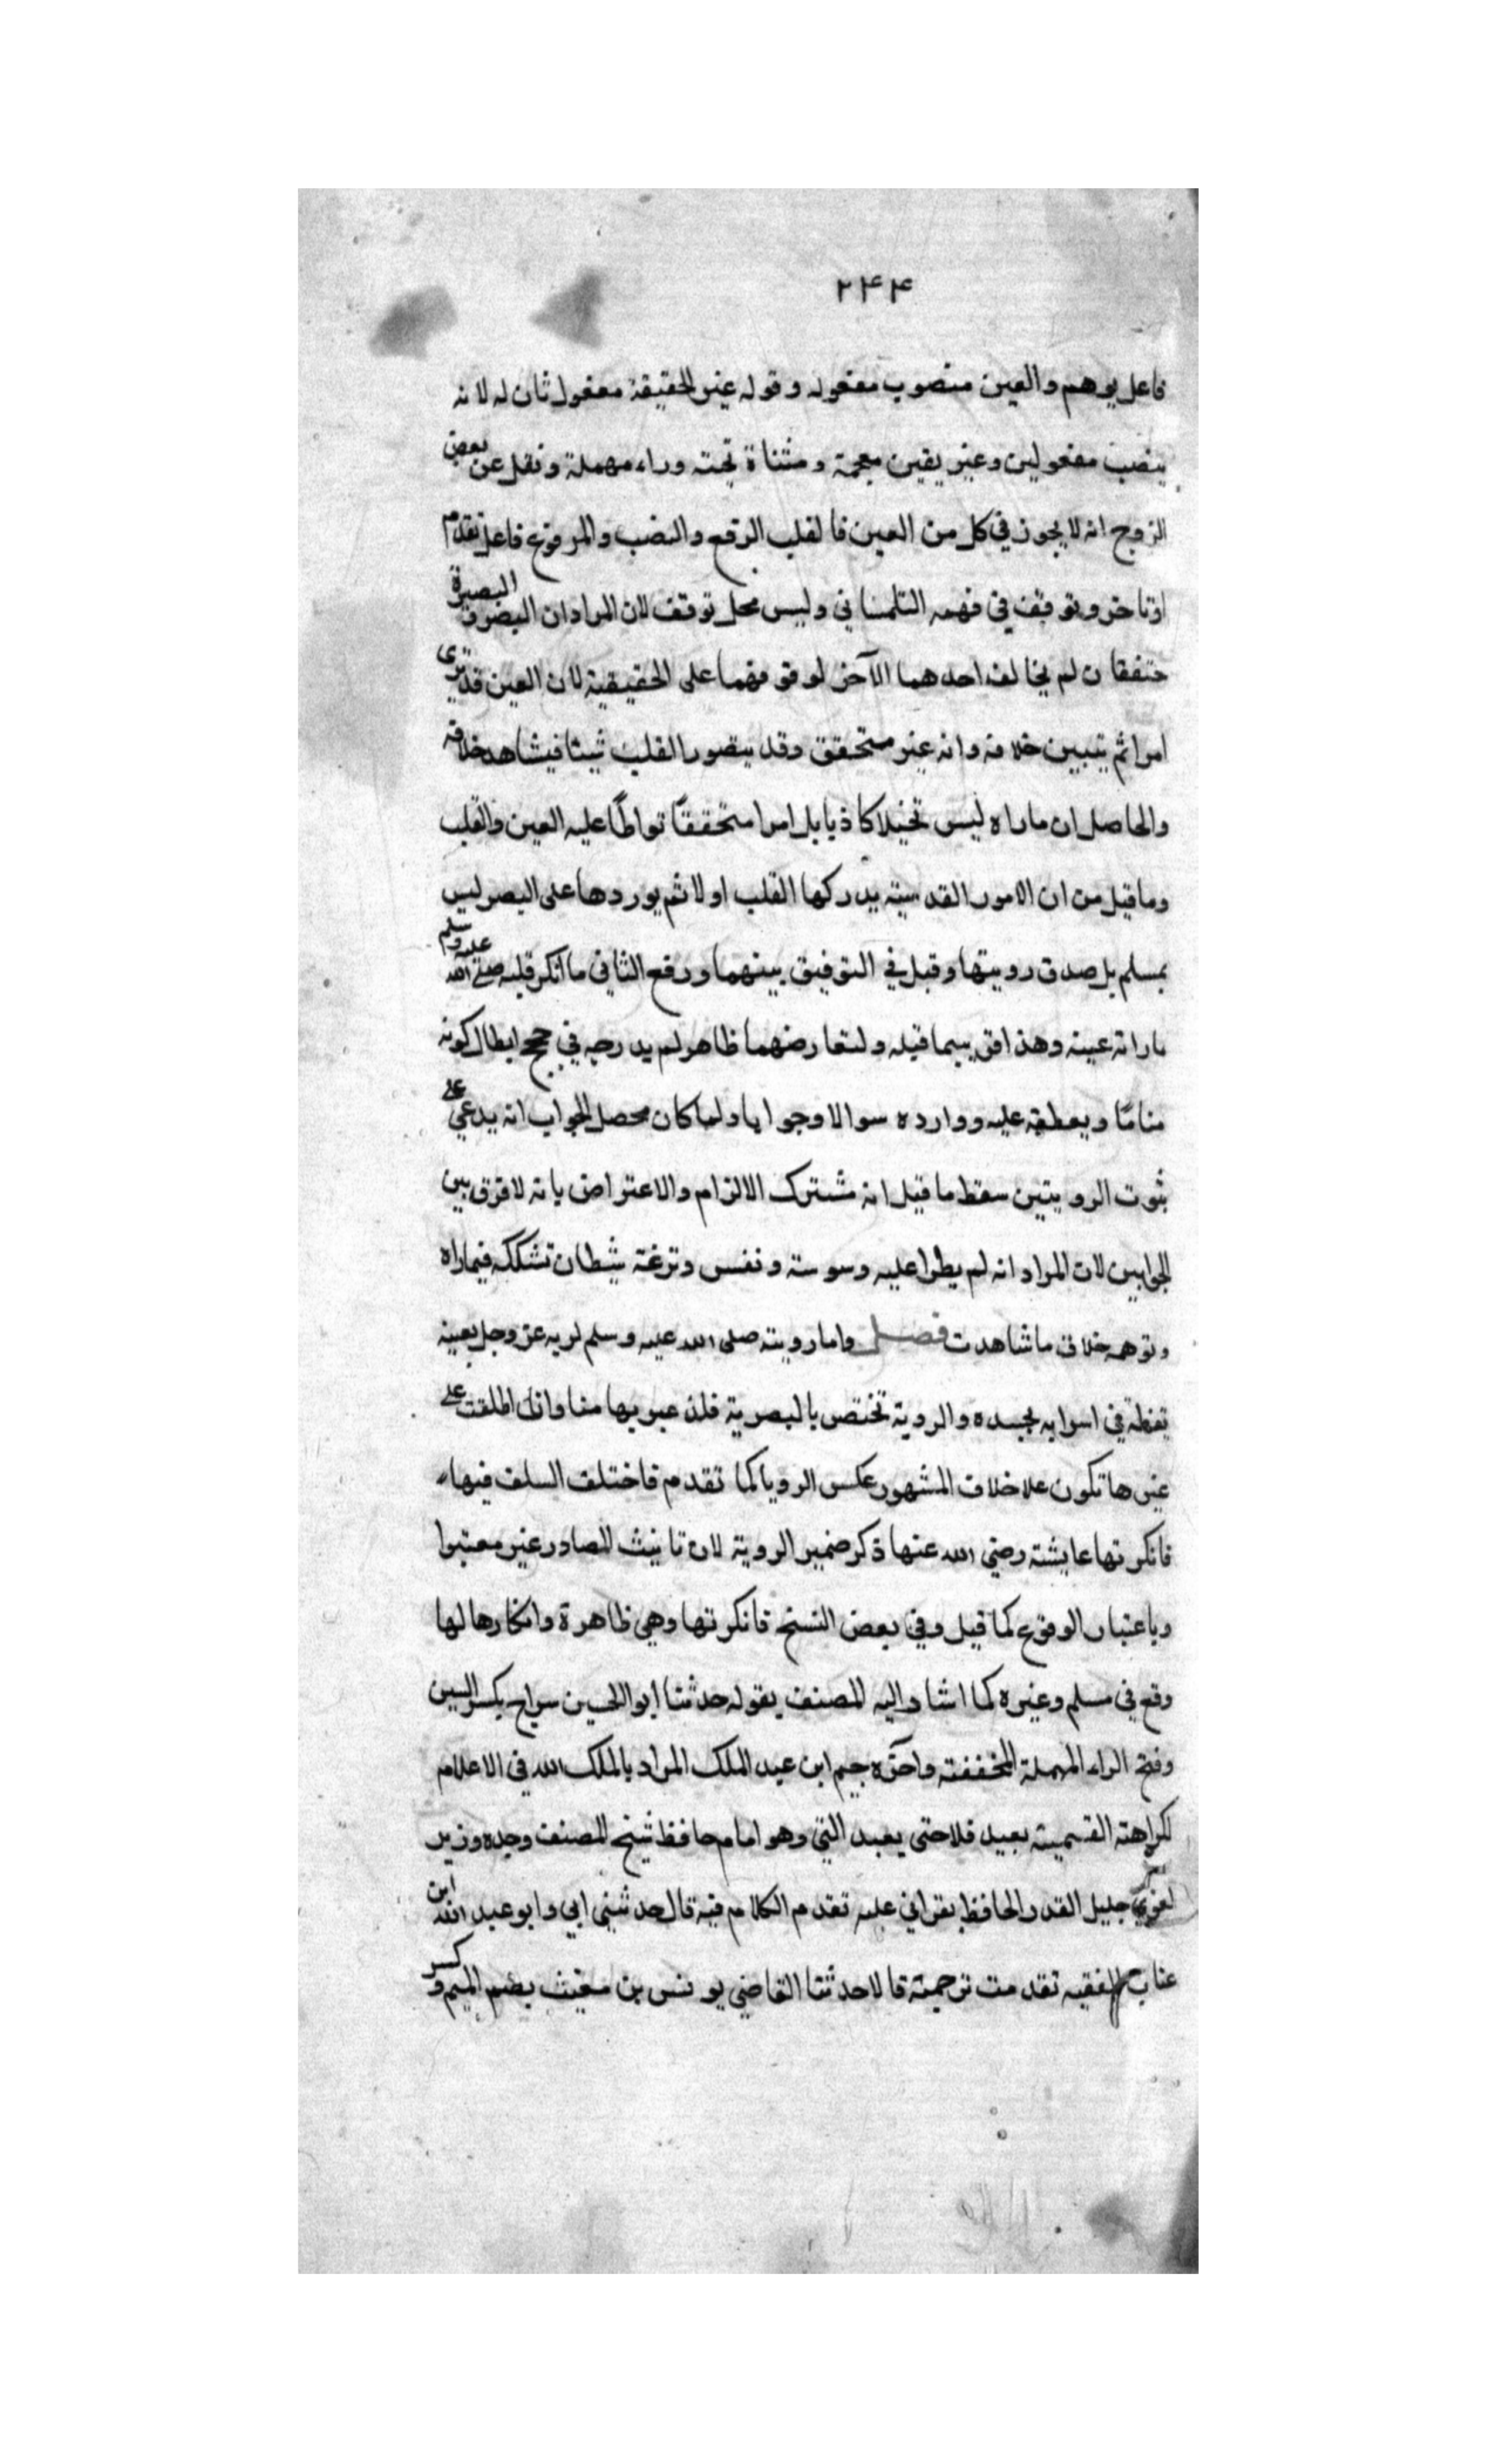 ٢٤٤
فاعل يوهم والعين منصوب مفعوله وقوله غير الحقيقة مفعول ثان له لانه
ينصب مفعولين وغير بغين معجمة ومثناة تحتيه وراء مهملة ونقل عن بعض
الزوج انه لا يجوز في كل من العين فالقلب الرفع والنصب والمرفوع فاعل تقدم
اوتاخر وتوقف في فهمه التلمساني وليس محل توقف لان المراد ان البصر والبصيرة
متفقان لم يخالف احدهما الآخر لوقوفهما على الحقيقية لان العين قد ترى
امرا ثم يتبين خلافه وانه غير مستحقق وقد يتصور القلب شيئا فيشاهد خلافه
والحاصل ان ماراه ليس تخيلا كاذبا بل امرا متحققًا تواطأ عليه العين والقلب
وما قيل من ان الامور القدسية يدركها القلب اولا ثم يوردها على البصر ليس
بمسلم بل صدق رويتها وقبل في التوفيق بينهما ورفع الثاني ما انكر قلبه صلى الله عليه وسلم
ماراته عينه وهذا قبله ولتعارضهما ظاهر لم يدرجه في حجج ابطال كونه
منامًا ويعطفه عليه وواردہ سوالا وجوابا ولما كان محصل الجواب انه يدعي على
ثبوت الرويتين سقط ما قيل انه مشترك الالزام والاعتراض بانه لا فرق بين
الجوابين لان المراد انه لم يطرا عليه وسوسة ونفس ونزغة شيطان تشككه فيماراه
وتوهمه خلاف ما شاهدت فصل واما رويته صلى الله عليه وسلم لربه عز وجل بعينه
يقظة في اسرايه بجسده والروية تختص بالبصرية فلذ عبر بها هنا وان اطلقت على
غيرها تكون علا خلاف المشهور عكس الرويا كما تقدم فاختلف السلف فيها
فانكرتها عايشة رضي الله عنها ذكر ضمير الروية لان تانيث المصادر غير معتبرا
وباعتبار الوقوع كما قيل وفي بعض النسخ فانكرتها وهي ظاهرة وانكارها لها
وقع في مسلم وغيره كما اشار اليه المصنف بقوله حدثنا ابوالحسين سراج بكسر السين
وفتح الراء المهملة المخففته وآخره جيم ابن عبد الملك المراد بالملك الله في الاعلام
لكراهته القسمية بعبد فلا حتى يعبد النبي وهو امام حافظ شيخ المصنف وجده وزير
لغوي جليل القدر الحافظ بقراني عليه تقدم الكلام فيه قال حدثني ابي وابو عبد الله ابن
عتاب الفقيه تقدمت ترجمته قالا حدثنا القاضي يونس بن مغيث بضم الميم وكسر